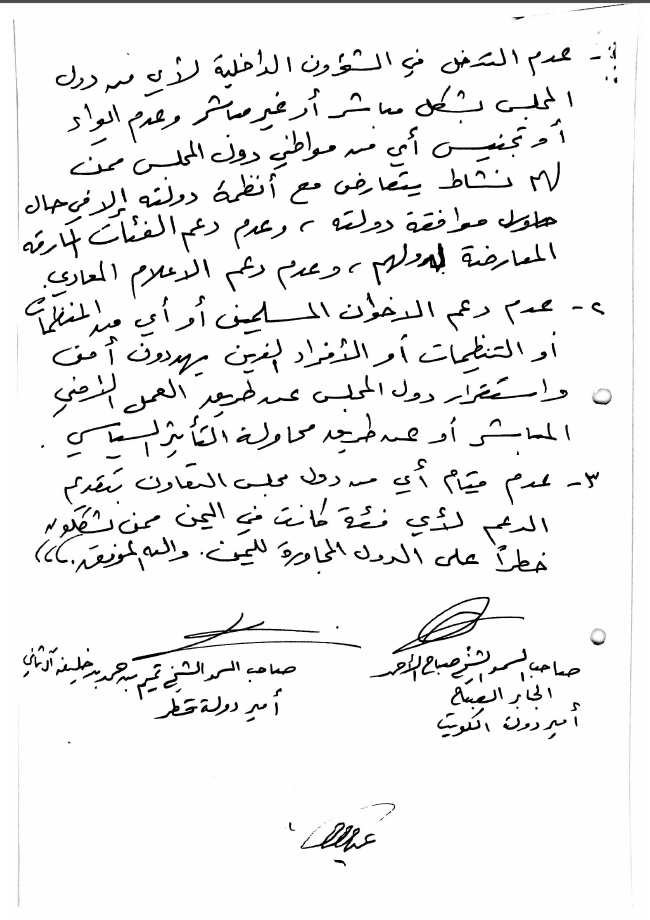 ١- عدم التدخل في الشؤون الداخلية لأي من دول
المجلس بشكل مباشر أو غير مباشر وعدم إيواء
أو تجنيس أي من مواطني دول المجلس ممن
لهم نشاط يتعارض مع أنظمة دولته إلا في حال
موافقة دولته، وعدم دعم الفئات المارقه
المعارضة لدولهم، وعدم دعم الاعلام المعادي.
٢- عدم دعم الاخوان المسلمين أو أي من المنظمات
أو التنظيمات أو الأفراد الذين يهددون أمن
واستقرار دول المجلس عن طريق العمل الأمني
المباشر أو عن طريق محاولة التأثير السياسي.
٣- عدم قيام أي من دول مجلس التعاون بتقديم
الدعم لأي فئة كانت في اليمن ممن يشكلون
خطراً على الدول المجاورة لليمن. والله الموفق،،،
صاحب السمو الشيخ صباح الأحمد
الجابر الصباح
أمير دولة الكويت
صاحب السمو الشيخ تميم بن حمد بن خليفه آل ثاني
أمير دولة قطر